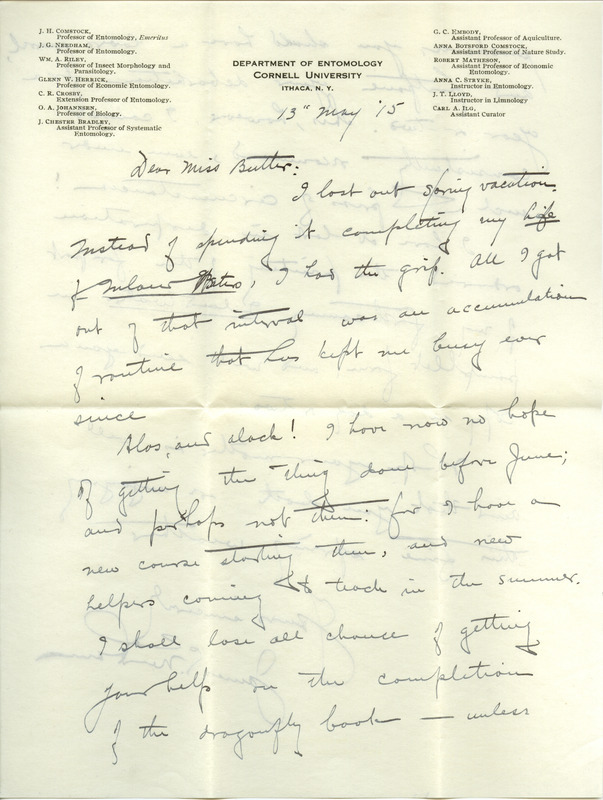 J. H. Comstock,
Professor of Entomology, Emeritus
J. G. Needham,
Professor of Entomology.
Wm. A. Riley,
Professor of Insect Morphology and
Parasitology.
Glenn W. Herrick,
Professor of Economic Entomology.
C. R. Crosby,
Extension Professor of Entomology.
O. A. Johannsen,
Professor of Biology.
J. Chester Bradley,
Assistant Professor of Systematic
Entomology.
DEPARTMENT OF ENTOMOLOGY
CORNELL UNIVERSITY
ITHACA, N. Y.
G. C. Embody,
Assistant Professor of Aquiculture.
Anna Botsford Comstock,
Assistant Professor of Nature Study.
Robert Matheson,
Assistant Professor of Economic
Entomology.
Anna C. Stryke,
Instructor in Entomology.
J. T. Lloyd,
Instructor in Limnology
Carl A. Ilg,
Assistant Curator
13th May '15
Dear Miss Butler:
I lost out spring vacation.
Instead of spending it completing my life
of Inland Waters, I had the grip. All I got
out of that interval was an accumulation
of routine that has kept me busy ever
since
Alas, and alack! I have now no hope
of getting the thing done before June;
and perhaps not then: for I have a
new course starting then, and new
helpers coming to teach in the summer.
I shall lose all chance of getting
your help on the completion
of the dragonfly book — unless